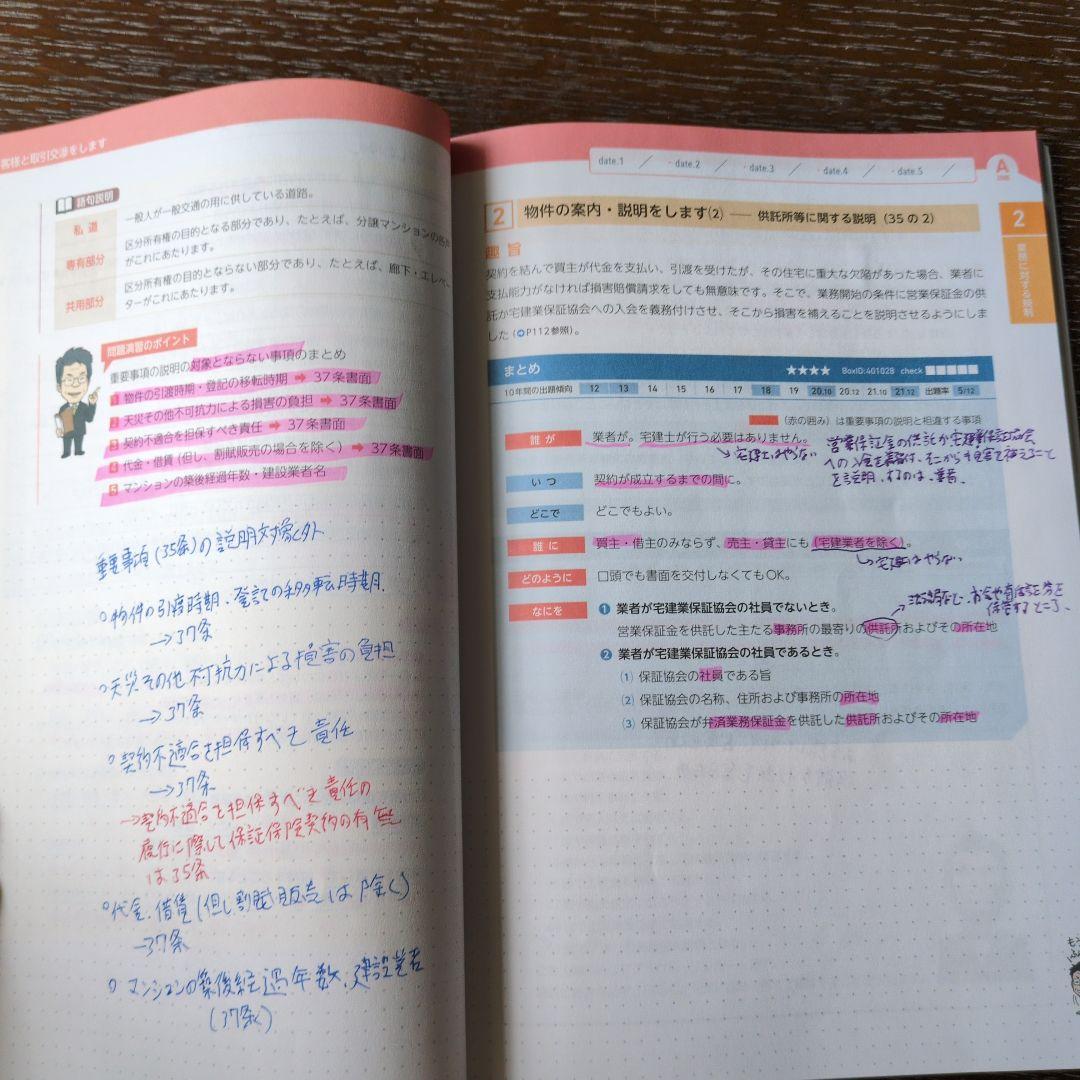 客様と取引交渉をします
語句説明
私道
一般人が一般交通の用に供している道路。
専有部分
区分所有権の目的となる部分であり、たとえば、分譲マンションの各
がこれにあたります。
共用部分
区分所有権の目的とならない部分であり、たとえば、廊下・エレベー
ターがこれにあたります。
問題演習のポイント
重要事項の説明の対象とならない事項のまとめ
1 物件の引渡時期・登記の移転時期 ➡ 37条書面
2 天災その他不可抗力による損害の負担 ➡ 37条書面
3 契約不適合を担保すべき責任 ➡ 37条書面
4 代金・借賃(但し、割賦販売の場合を除く) ➡ 37条書面
5 マンションの築後経過年数・建設業者名
重要事項(35条)の説明対象外
○物件の引渡時期、登記の移転時期
→37条
○天災その他不可抗力による損害の負担
→37条
○契約不適合を担保すべき責任
→37条
→契約不適合を担保すべき責任の
履行に際して保証保険契約の有無
は35条
○代金、借賃(但し割賦販売は除く)
→37条
○マンションの築後経過年数、建設業者
(37条)
date.1 / date.2 / date.3 / date.4 / date.5 /
A
2 物件の案内・説明をします⑵ ── 供託所等に関する説明(35の2)
2
業務に対する規制
趣旨
契約を結んで買主が代金を支払い、引渡を受けたが、その住宅に重大な欠陥があった場合、業者に
支払能力がなければ損害賠償請求をしても無意味です。そこで、業務開始の条件に営業保証金の供
託か宅建業保証協会への入会を義務付けさせ、そこから損害を補えることを説明させるようにしま
した(➲P112参照)。
まとめ ★★★★ BoxID:401028 check
10年間の出題傾向 12 13 14 15 16 17 18 19 20.10 20.12 21.10 21.12 出題率 5/12
(赤の囲み)は重要事項の説明と相違する事項
誰が 業者が。宅建士が行う必要はありません。
→宅建士はやらない
営業保証金の供託か宅建業保証協会
への入会を義務付け、そこから損害を補えること
を説明、するのは、業者
いつ 契約が成立するまでの間に。
どこで どこでもよい。
誰に 買主・借主のみならず、売主・貸主にも(宅建業者を除く)。
どのように 口頭でも書面を交付しなくてもOK。
なにを ❶ 業者が宅建業保証協会の社員でないとき。
営業保証金を供託した主たる事務所の最寄りの供託所およびその所在地
❷ 業者が宅建業保証協会の社員であるとき。
⑴ 保証協会の社員である旨
⑵ 保証協会の名称、住所および事務所の所在地
⑶ 保証協会が弁済業務保証金を供託した供託所およびその所在地